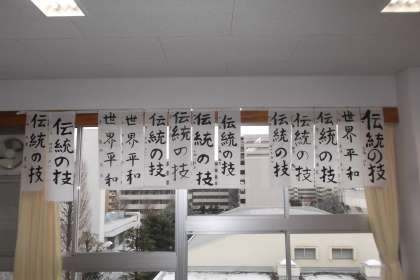 伝統の技
世界平和
伝統の技
伝統の技
伝統の技
伝統の技
伝統の技
伝統の技
伝統の技
世界平和
世界平和
伝統の技
伝統の技